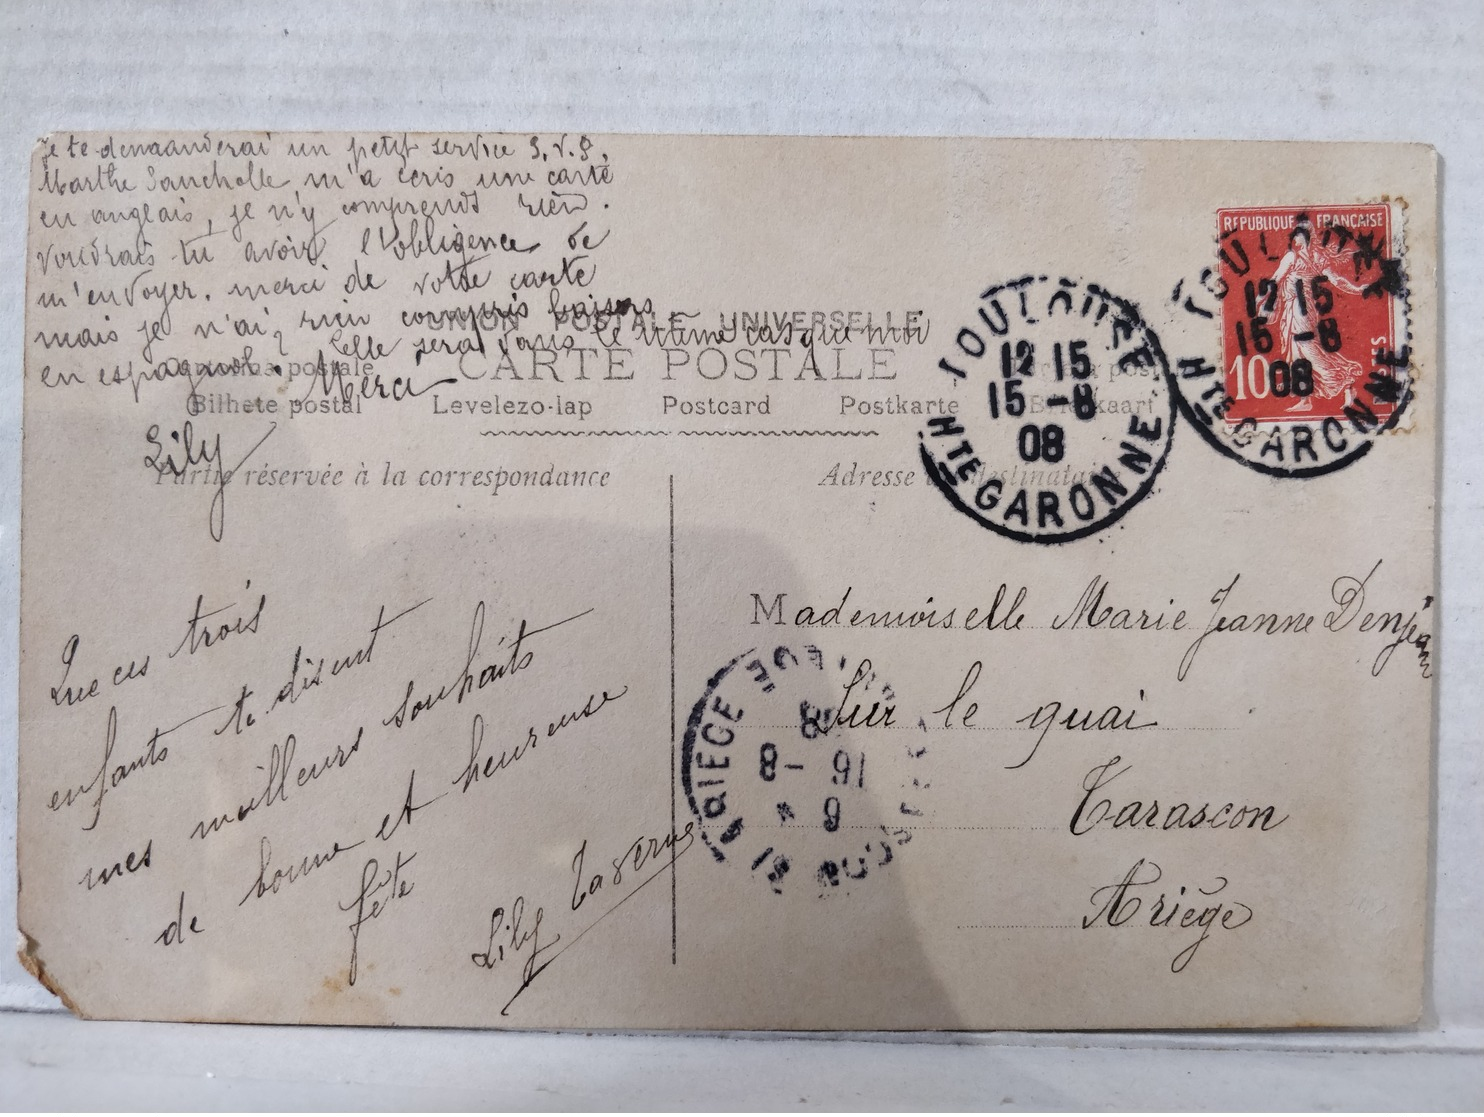 Je te demaanderai un petit service S.V.P.
Marthe Sancholle m'a écris une carte
en anglais, je n'y comprends rien.
Voudrais-tu avoir l'obligence de
m'envoyer. merci de votre carte
mais je n'ai rien compris baisers
Celle sera dans le même cas que moi
en espagnol. Merci
Lily
UNION POSTALE UNIVERSELLE
CARTE POSTALE
postale
Bilhete postal Levelezo-lap Postcard Postkarte Briefkaart
Partie réservée à la correspondance
Adresse du destinataire
REPUBLIQUE FRANÇAISE
10
POSTES
TOULOUSE
12 15
15 -8
08
HTE GARONNE
TOULOUSE
12 15
15 -8
08
HTE GARONNE
Que ces trois
enfants te disent
mes meilleurs souhaits
de bonne et heureuse
fête
Lily Taverne
Mademoiselle Marie Jeanne Denjean
Sur le quai
Tarascon
Ariège
ARIEGE
9
16 -8
08